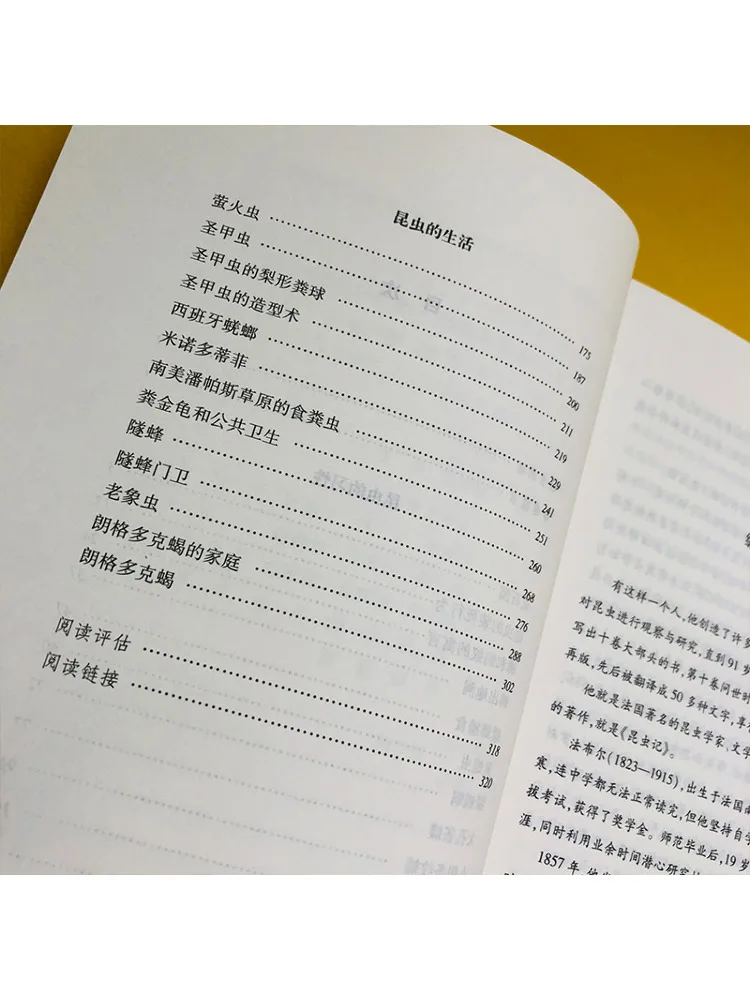 昆虫的生活
萤火虫 …… 175
圣甲虫 …… 187
圣甲虫的梨形粪球 …… 200
圣甲虫的造型术 …… 211
西班牙蜣螂 …… 219
米诺多蒂菲 …… 229
南美潘帕斯草原的食粪虫 …… 241
粪金龟和公共卫生 …… 251
隧蜂 …… 260
隧蜂门卫 …… 268
老象虫 …… 276
朗格多克蝎的家庭 …… 288
朗格多克蝎 …… 302
阅读评估 …… 318
阅读链接 …… 320
有这样一个人，他创造了许多
对昆虫进行观察与研究，直到91岁
写出十卷大部头的书，第十卷问世时
再版，先后被翻译成50多种文字，享
他就是法国著名的昆虫学家、文学
的著作，就是《昆虫记》。
法布尔(1823—1915)，出生于法国南
寒，连中学都无法正常读完，但他坚持自学
拔考试，获得了奖学金。师范毕业后，19岁
涯，同时利用业余时间潜心研究
1857年